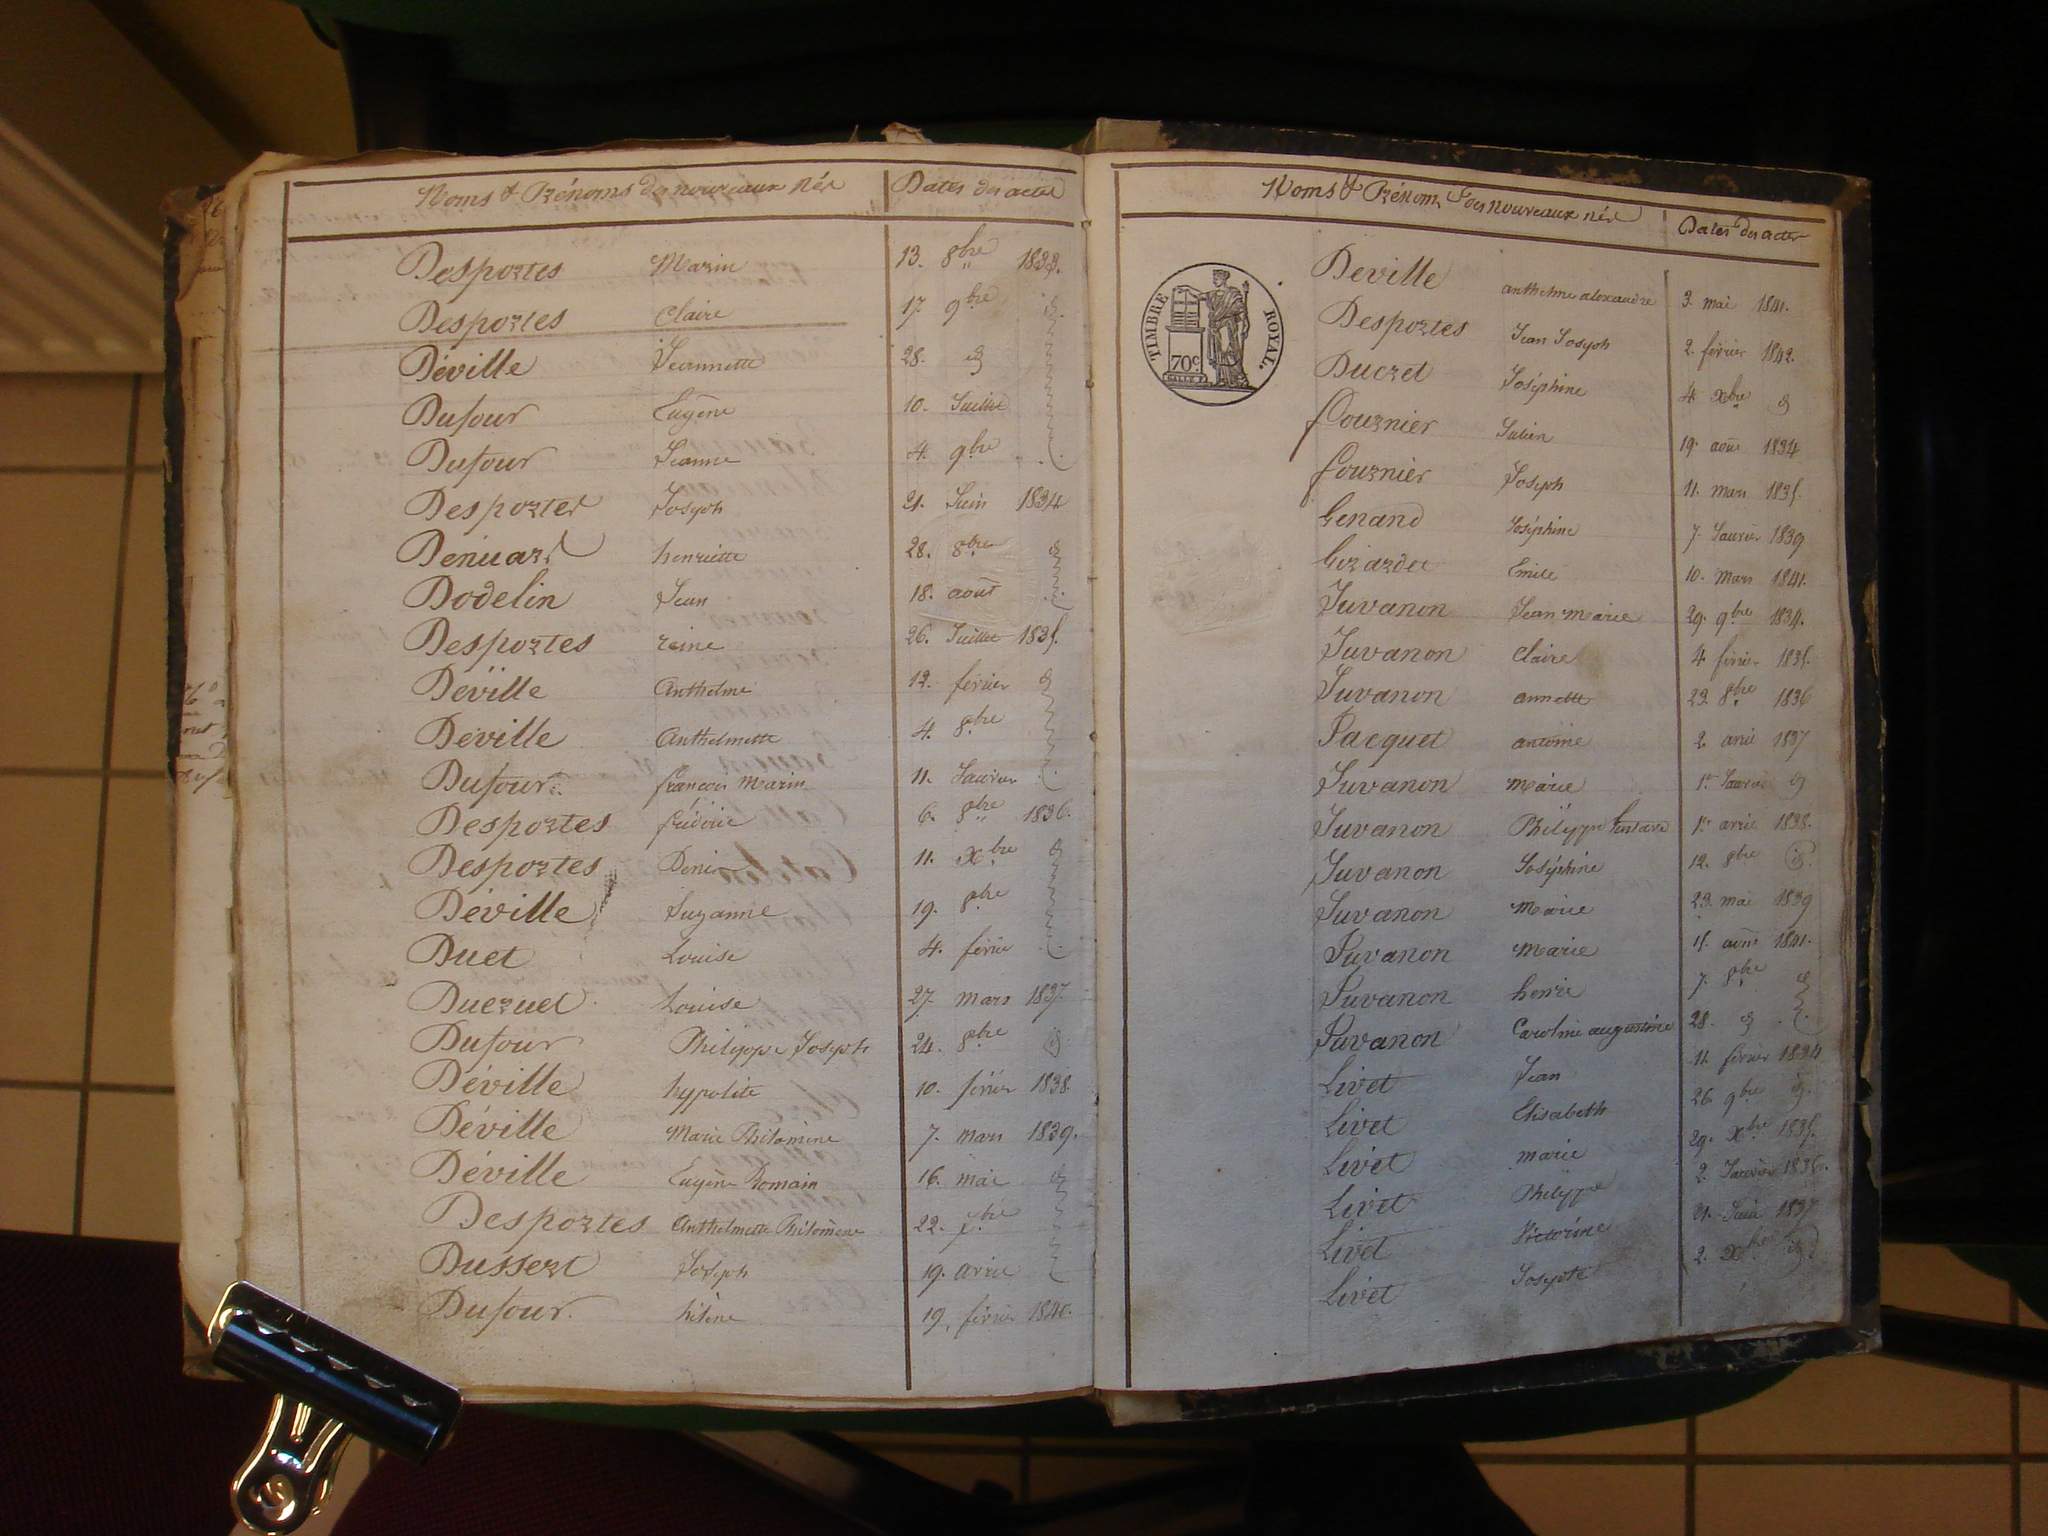 Noms & Prénoms des nouveaux nés Dates des actes
Desportes Marin 13. 8bre 1833.
Desportes Claire 17. 9bre id.
Déville Jeannette 28. id
Dufour Eugène 10. Juillet
Dufour Jeanne 4. 9bre
Desportes Joseph 21. Juin 1834
Denuard henriette 28. 8bre id
Dodelin Jean 18. août
Desportes reine 26. Juillet 1835.
Déville Anthelme 12. février id
Déville Anthelmette 4. 8bre
Dufour françois Marin 11. Janvier
Desportes frédéric 6. 8bre 1836.
Desportes Denis 11. Xbre id
Déville Suzanne 19. 8bre
Duet Louise 4. février
Ducruet Louise 27. mars 1837.
Dufour Philippe Joseph 24. 8bre id
Déville hypolite 10. février 1838.
Déville Marie Philomène 7. mars 1839.
Déville Eugène Romain 16. mai id
Desportes Anthelmette Philomène 22. 7bre
Dussert Joseph 19. avril
Dufour. hélène 19. février 1840.
Noms & Prénoms des nouveaux nés Dates des actes
TIMBRE ROYAL.
70c
Deville anthelme alexandre 3. mai 1841.
Desportes Jean Joseph 2. février 1842.
Ducret Joséphine 4 Xbre id
fournier Julien 19. août 1834
fournier Joseph 11. mars 1835.
Genand Joséphine 7. Janvier 1839
Girardet Emile 10. mars 1841.
Juvanon Jean Marie 29. 9bre 1834.
Juvanon Claire 4 février 1835.
Juvanon annette 23. 8bre 1836
Jacquet antoine 2. avril 1837
Juvanon Marie 1er Janvier id
Juvanon Philippe Gustave 1er avril 1838.
Juvanon Joséphine 12. 8bre id.
Juvanon Marie 23. mai 1839
Juvanon Marie 15. août 1841.
Juvanon henri 7. 8bre id
Juvanon Caroline augustine 28. id
Livet Jean 11. février 1834
Livet Elisabeth 26. 9bre id.
Livet marie 29. Xbre 1835.
Livet Philippe 2. Janvier 1836.
Livet Victorine 21. Juin 1837
Livet Josepte 2. Xbre id